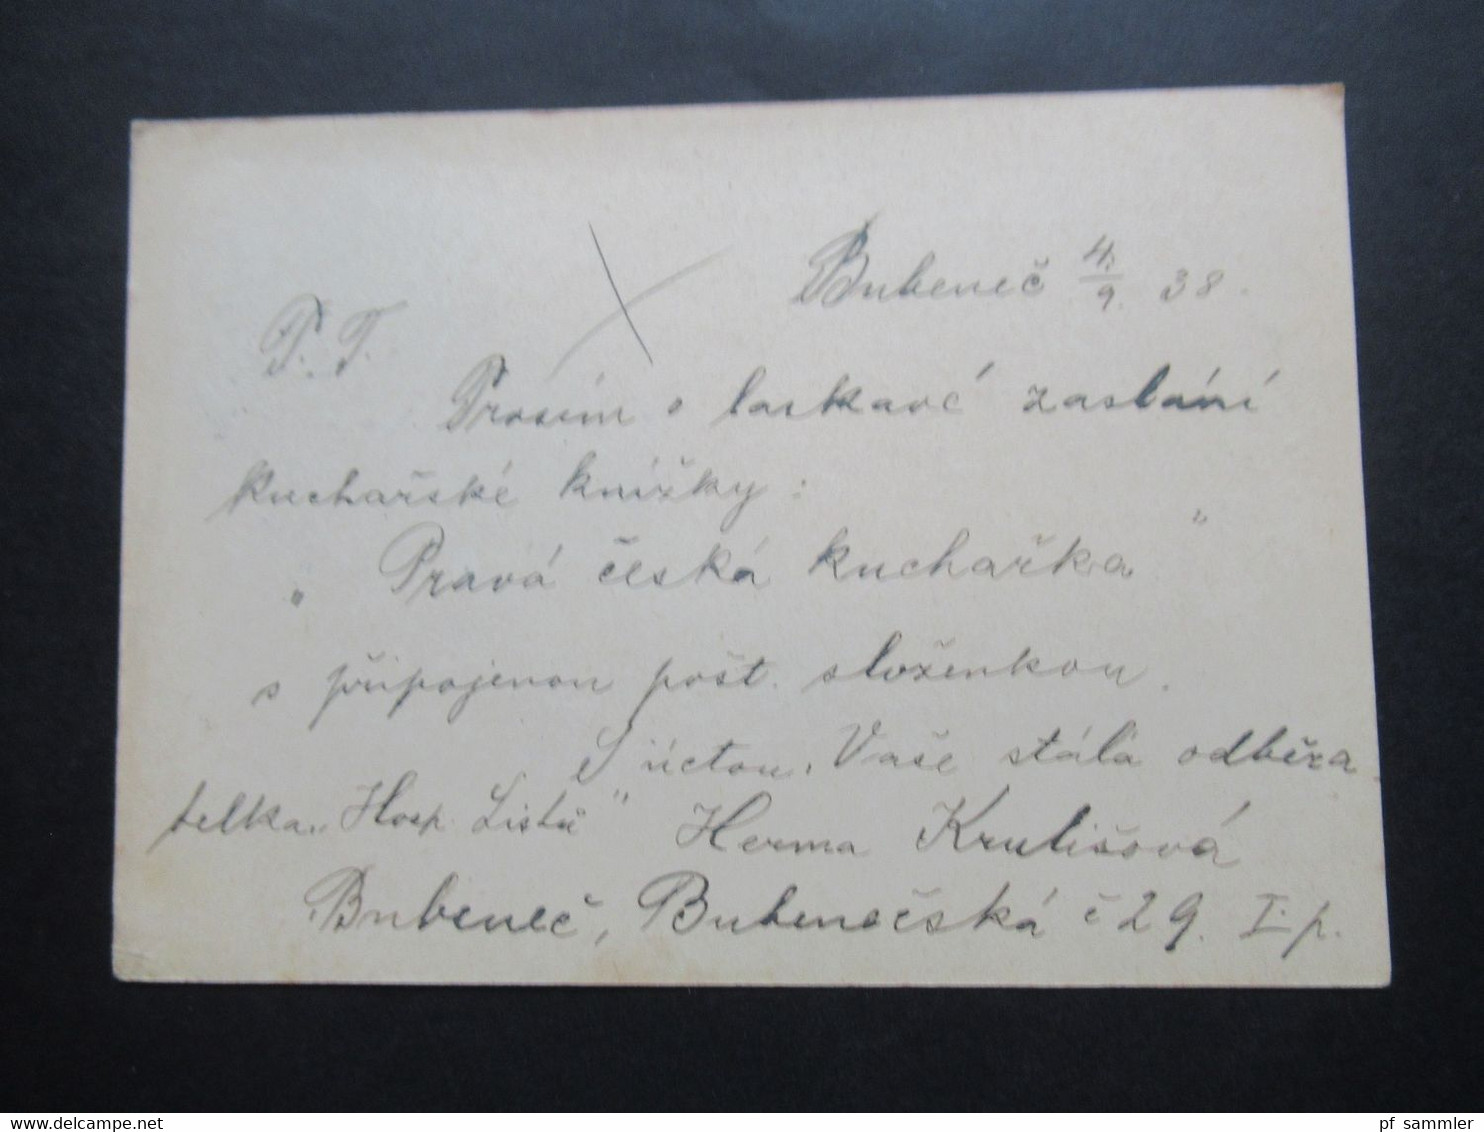 Bubeneč 4./9. 38.
P. T.
Prosím o laskavé zaslání
kuchařské knížky:
„Pravá česká kuchařka"
s připojenou pošt. složenkou.
S úctou, Vaše stálá odběra-
telka „Hosp. Listů" Herma Krulišová
Bubeneč, Bubenečská č 29. I. p.
www.delcampe.net
pf_sammler